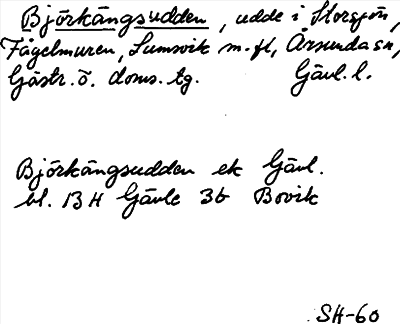 Björkängsudden, udde i Storsjön,
Fågelmuren, Lumsvik m.fl, Årsunda sn,
Gästr. ö. doms. tg. Gävl. l.
Björkängsudden ek Gävl.
bl. 13 H Gävle 3b Bovik
SH-60